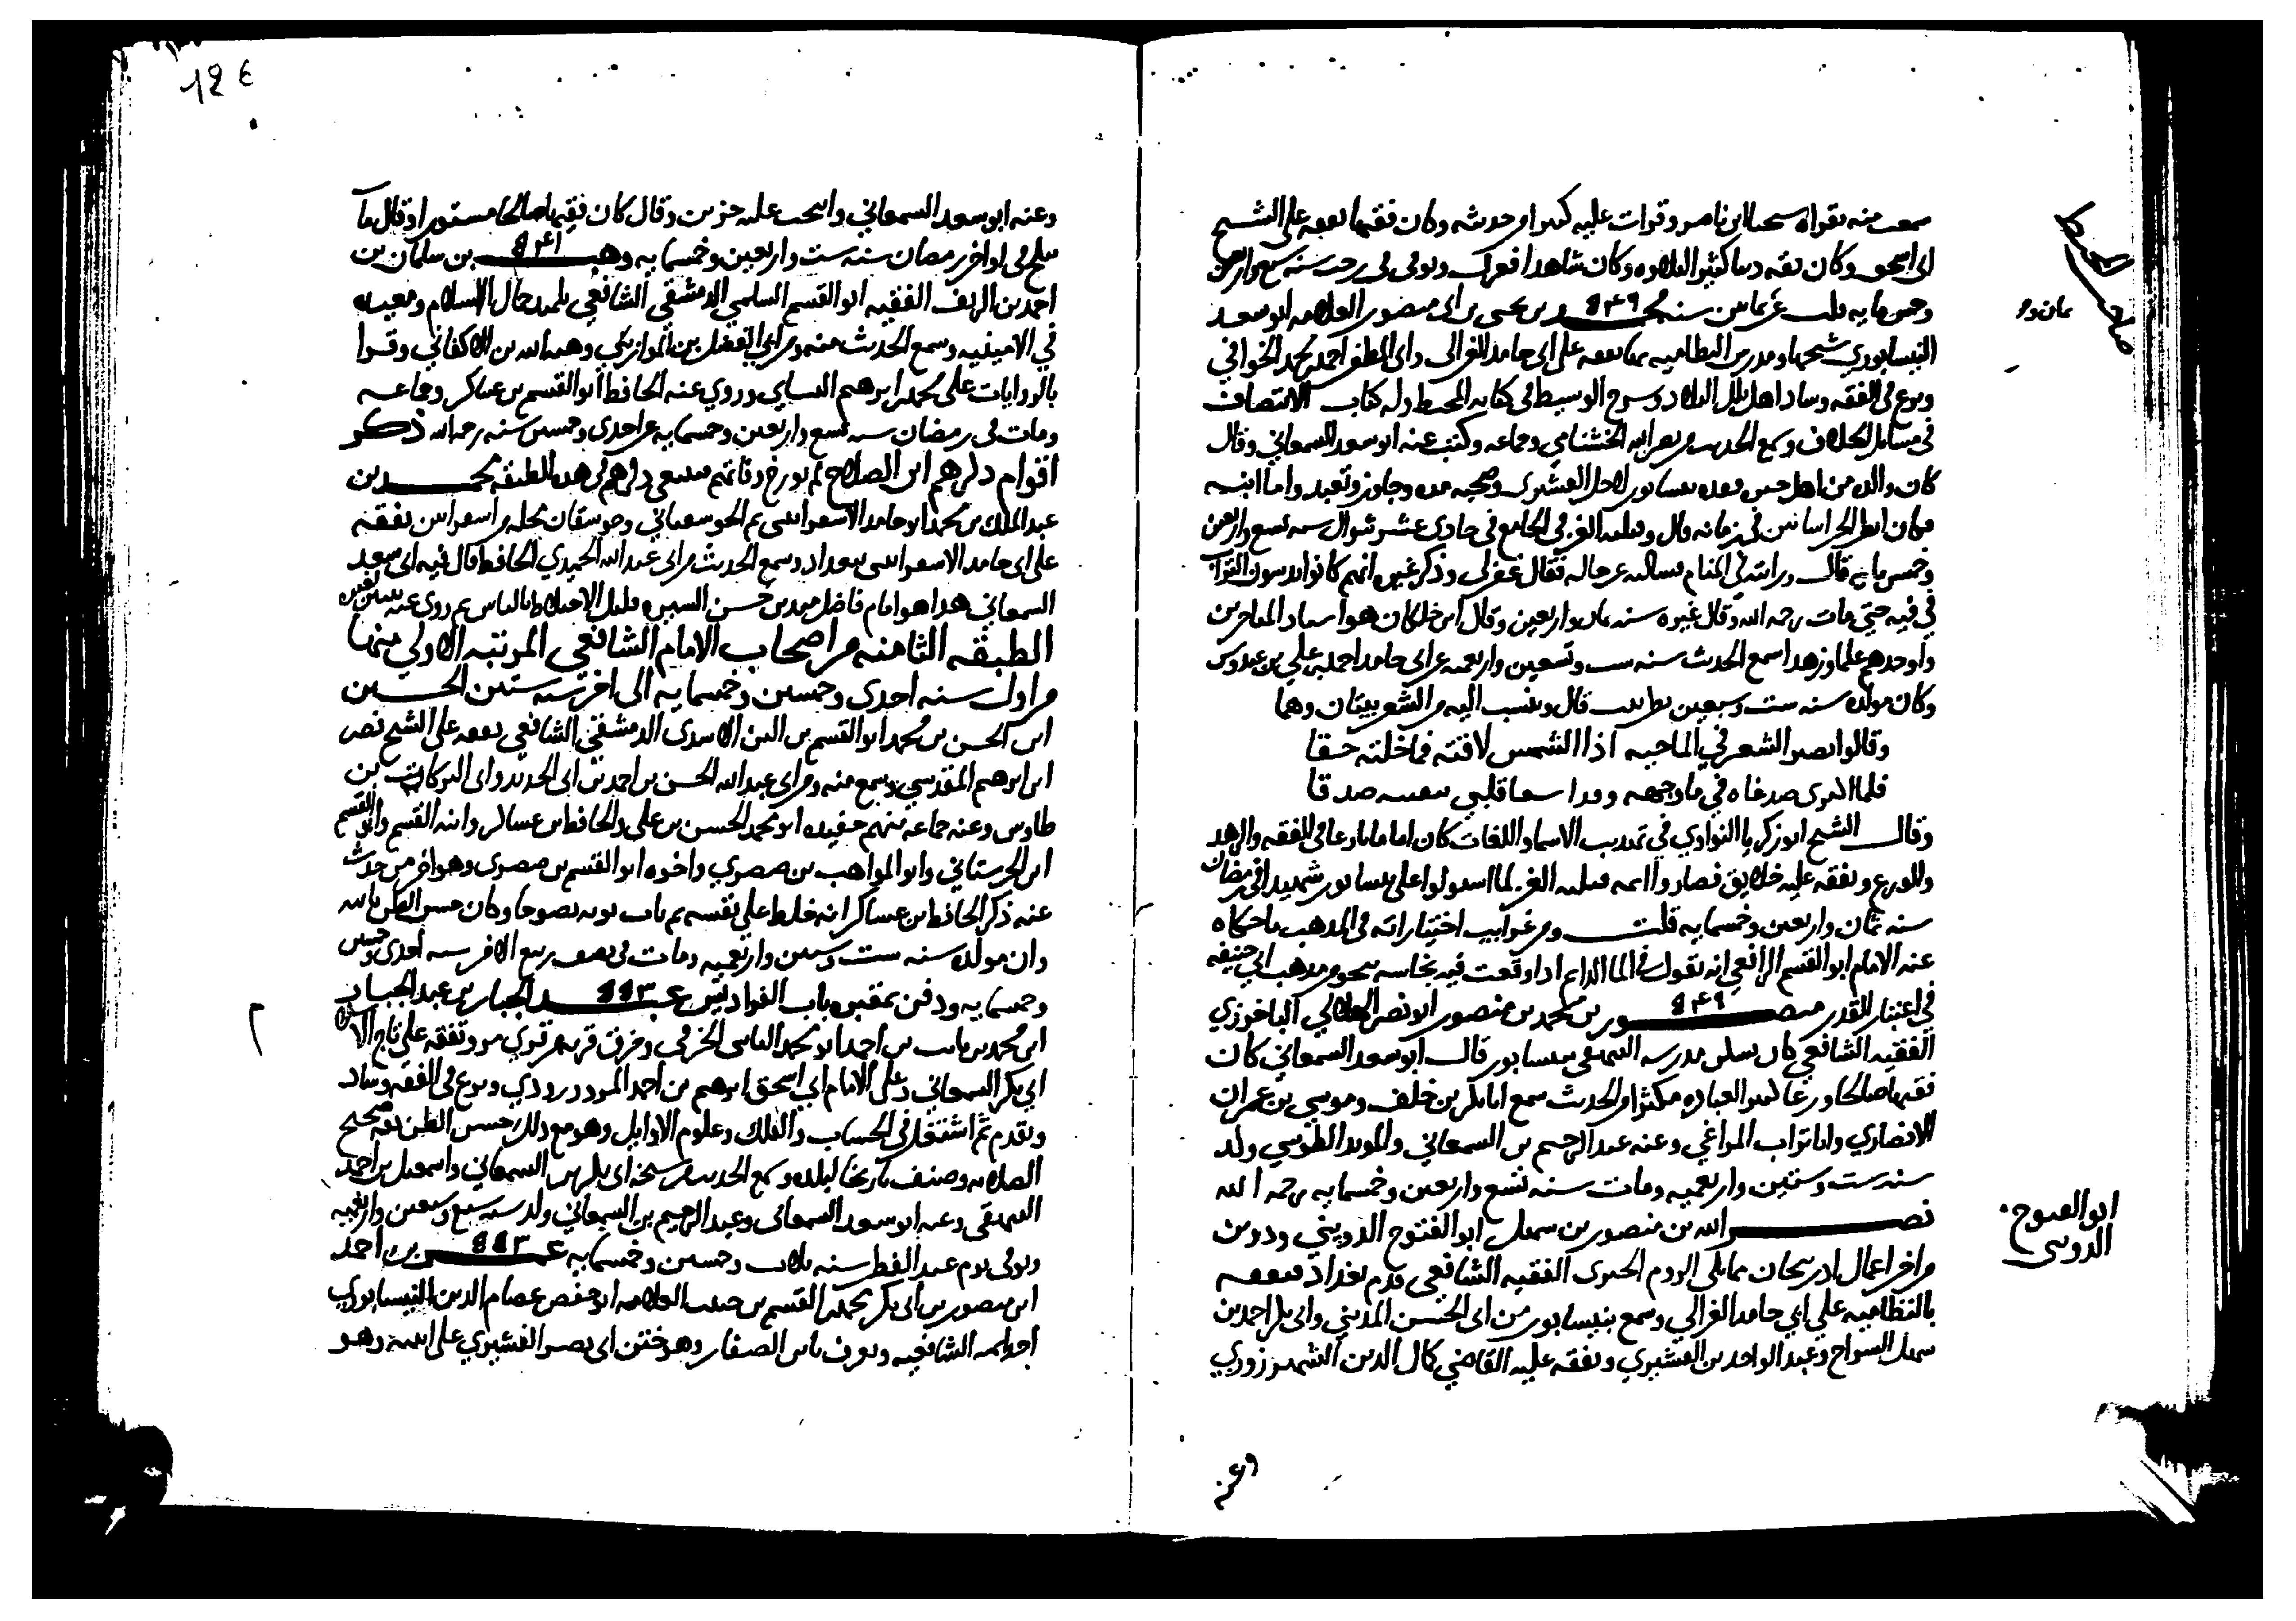 سمعت منه بقراة شيخنا ابن ناصر وقرات عليه كثيرا من حديثه وكان فقيها تفقه على الشيخ
ابي اسحق وكان ثقة دينا كثير التلاوة وكان شاهدا فعزل وتوفي في رجب سنة سبع واربعين
وخمس مايه عن ثمانين سنة محمد ٥٤٩ بن يحيى بن ابي منصور العلامه ابو سعد
النيسابوري شيخها ومدرس النظاميه بها تفقه على ابي حامد الغزالي وابي المظفر احمد بن محمد الخوافي
وبرع في الفقه وساد اهل تلك البلاد وشرح الوسيط في كتابه المحيط وله كتاب الانتصاف
في مسايل الخلاف وسمع الحديث من نصر الله الخشنامي وجماعه وكتب عنه ابو سعد السمعاني وقال
كان والده من اهل قدم نيسابور لاجل القشيري وصحبه مده وجاور وتعبد واما ابنه
فكان انظر الخراسانيين في زمانه قال وقتلته الغز في الجامع في حادي عشر شوال سنه تسع واربعين
وخمس مايه قال ورايته في المنام فسالته عن حاله فقال غفر لي وذكر غيره انهم كانوا يدسون التراب
في فيه حتى مات رحمه الله وقال غيره سنه ثمان واربعين وقال ابن خلكان هو استاد المتاخرين
واوحدهم علما وزهدا سمع الحديث سنه ست وتسعين واربعمه من ابي حامد احمد بن علي بن عبدوس
وكان مولده سنه ست وسبعين قال وينسب اليه من الشعر بيتان وهما
وقالوا يصير الشعر في الماحيه اذا الشمس لاقته فما خلته حقا
فلما التوى صدغاه في ماوجهه وقد لسعا قلبي تيقنته صدقا
وقال الشيخ ابو زكريا النواوي في تهذيب الاسماء واللغات كان اماما بارعا في الفقه والزهد
والورع وتفقه عليه خلايق فصاروا ايمه قتلته الغز لما استولوا على نيسابور شهيدا في رمضان
سنه ثمان واربعين وخمسمايه قلت ومن غرايب اختياراته في المذهب ما حكاه
عنه الامام ابو القسم الرافعي انه يقول في الما الدايم اذا وقعت فيه نجاسه بنحو مذهب ابي حنيفه
في اعتبار القدر منصور ٥٤٩ بن محمد بن منصور ابو نصر الهلالي الباخرزي
الفقيه الشافعي كان يسكن مدرسه البيهقي بنيسابور قال ابو سعد السمعاني كان
فقيها صالحا ورعا كثير العباده مكثرا من الحديث سمع ابا بكر بن خلف وموسى بن عمران
الانصاري وابا تراب المراغي وعنه عبد الرحيم بن السمعاني والمويد الطوسي ولد
سنه ست وستين واربعميه ومات سنه تسع واربعين وخمسمايه رحمه الله
نصر الله بن منصور بن سهل ابو الفتوح الدويني ودوين
من اخر اعمال اذربيجان مما يلي الروم الجنزي الفقيه الشافعي قدم بغداد فتفقه
بالنظاميه على ابي حامد الغزالي وسمع بنيسابور من ابي الحسن المديني وابي بكر احمد بن
سهل السراج وعبد الواحد بن القشيري وتفقه عليه القاضي كمال الدين الشهرزوري
صاحب المحيط
ثمان و
ابو الفتوح
الدويني
وعنه
١٢٤
وعنه ابو سعد السمعاني وانتخب عليه جزين وقال كان فقيها صالحا مستورا وقال ما
بلخ في اواخر رمضان سنه ست واربعين وخمسمايه وهب ٥٤١ بن سلمان بن
احمد بن الزنف الفقيه ابو القسم السلمي الدمشقي الشافعي تلميذ جمال الاسلام ومعيده
في الامينيه وسمع الحديث منه ومن ابي الفضل بن الموازيني وهبة الله بن الاكفاني وقرا
بالروايات على محمد بن ابرهيم النساي وروى عنه الحافظ ابو القسم بن عساكر وجماعه
ومات في رمضان سنه تسع واربعين وخمسمايه عن احدى وخمسين سنه رحمه الله ذكر
اقوام ذكرهم ابن الصلاح لم يورخ وفاتهم ينبغي ذكرهم في هذه الطبقه محمد بن
عبد الملك بن محمد ابو حامد الاسفرايني ثم الجوسقاني وجوسقان محله من اسفراين تفقه
على ابي حامد الاسفرايني ببغداد وسمع الحديث من ابي عبد الله الحميدي الحافظ قال فيه ابو سعد
السمعاني هذا هو امام فاضل متدين حسن السيره قليل الاختلاط بالناس ثم روى عنه
الطبقه الثامنه من اصحاب الامام الشافعي المرتبه الاولى منها
من اول سنه احدى وخمسين وخمسمايه الى اخر سنه ستين الحسين
ابن الحسن بن محمد ابو القسم بن البن الاسدي الدمشقي الشافعي تفقه على الشيخ نصر
ابن ابرهيم المقدسي وسمع منه ومن ابي عبد الله الحسن بن احمد بن ابي الحديد وابي البركات بن
طاوس وعنه جماعه منهم حفيده ابو محمد الحسن بن علي والحافظ بن عساكر وابنه القسم وابو القسم
ابن الحرستاني وابو المواهب بن صصري واخوه ابو القسم بن صصرى وهو اخر من حدث
عنه ذكر الحافظ بن عساكر انه خلط على نفسه ثم تاب توبه نصوحا وكان حسن الظن بالله
وان مولده سنه ست وستين واربعميه ومات في نصف ربيع الاخر سنه احدى وخمسين
وخمسمايه ودفن بمقبره باب الفراديس عبد ٥٥٣ الجبار بن عبد الجبار
ابن محمد بن ثابت بن احمد ابو محمد الثابتي الخرقي وخرق قريه من قرى مرو تفقه على تاج الاسلام
ابي بكر السمعاني وعلى الامام ابي اسحق ابرهيم بن احمد المروروذي وبرع في الفقه وساد
وتقدم ثم اشتغل في الحساب والفلك وعلوم الاوايل وهو مع ذلك حسن الظن بقه صحيح
الصلاه وصنف تاريخا لبلده وسمع الحديث من شيخه ابي بكر بن السمعاني واسمعيل بن احمد
البيهقي وعنه ابو سعد السمعاني وعبد الرحيم بن السمعاني ولد سنه سبع وسبعين واربعميه
وتوفي يوم عيد الفطر سنه ثلاث وخمسين وخمسمايه عمر ٥٥٣ بن احمد
ابن منصور بن ابي بكر محمد بن القسم بن حبيب العلامه ابو حفص عصام الدين النيسابوري
احد ايمه الشافعيه ويعرف بابن الصفار وهو ختن ابي نصر القشيري على ابنته وهو